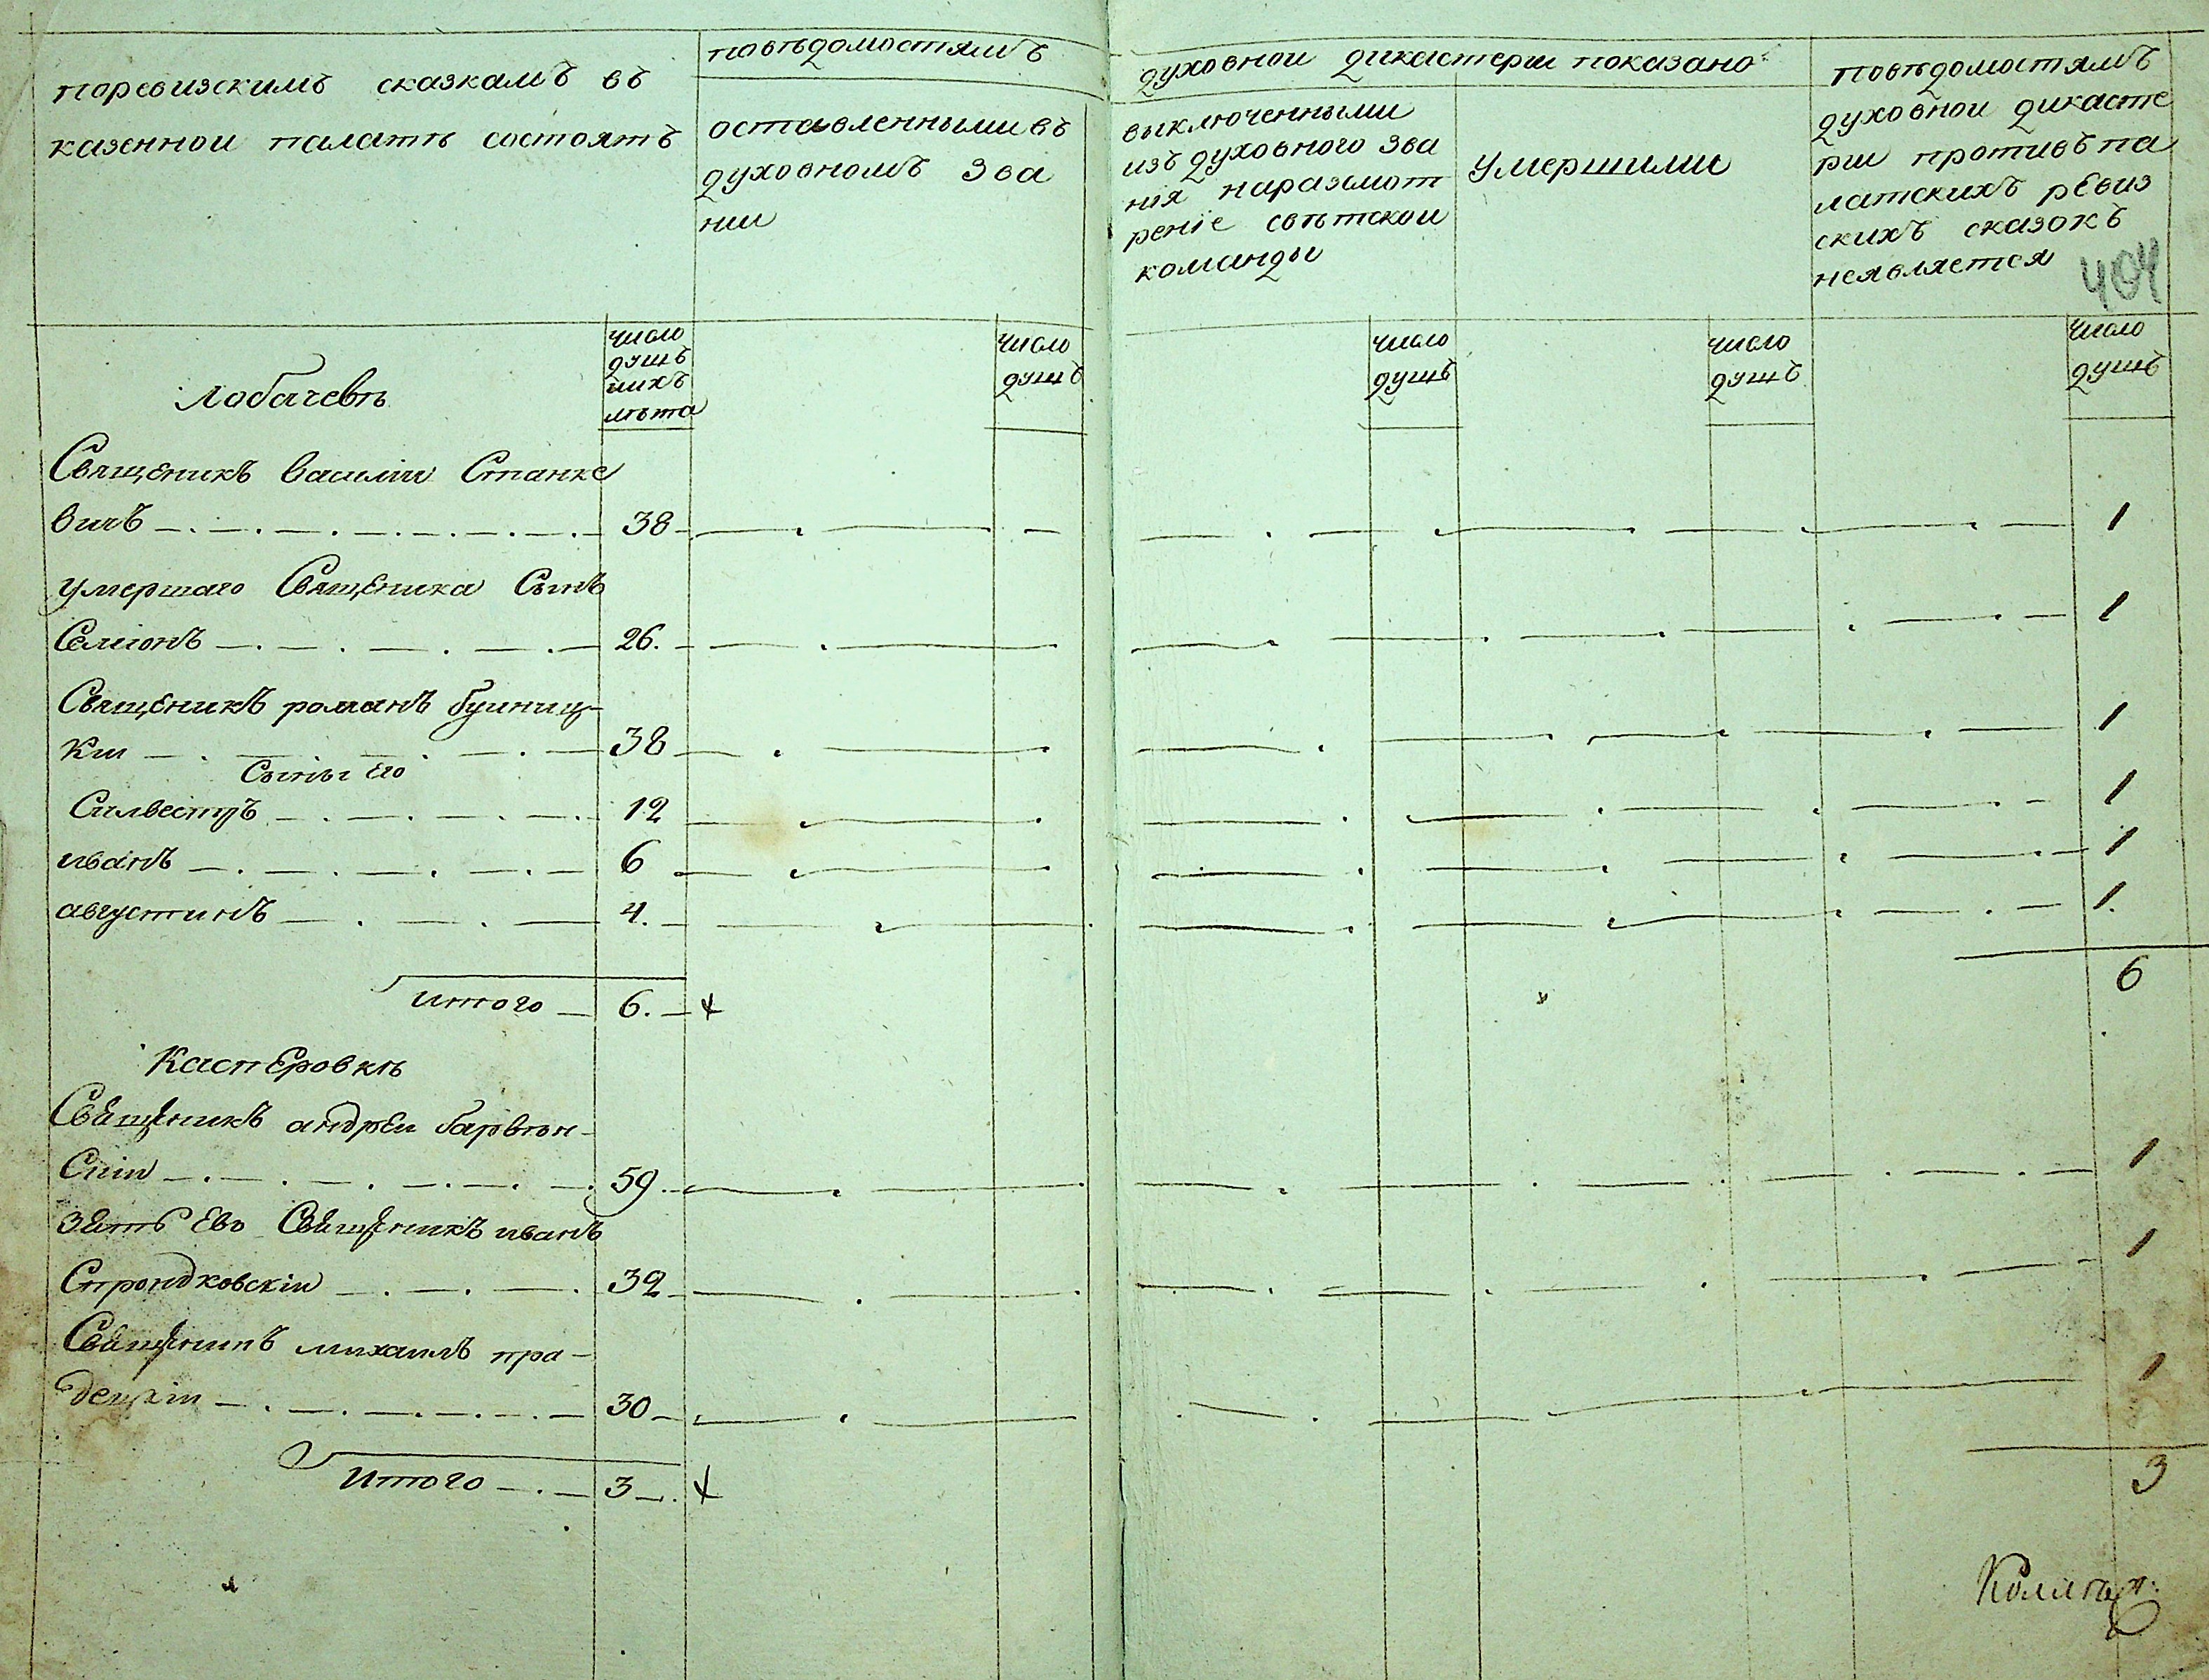 поревизскимъ сказкамъ въ
казеннои палатѣ состоятъ
повѣдомостямъ
оставленными въ
духовномъ зва
нии
духовнои дикастерии показано
выключенными
изъ духовного зва
нія наразсмот
реніе свѣтскои
команды
умершими
повѣдомостямъ
духовнои дикасте
рии противъ па
латскихъ ревиз
скихъ сказокъ
неявляется
404
число
душъ
иихъ
лѣта
число
душъ
число
душъ
число
душъ
число
душъ
Лобачевѣ
Священикъ василии Станке
вичъ 38 1
умершаго Священика Сынъ
Семіонъ 26. 1
Священикъ романъ буиниц-
кии 38 1
Сыны его
Силвестръ 12 1
иванъ 6 1
августинъ 4. 1.
итого 6. 6
Касперовкѣ
Священикъ андреи барвѣн-
скіи 59 1
зять ево Священикъ иванъ
Строидковскіи 32 1
Священикъ михаилъ пра-
децкіи 30 1
Итого 3 3